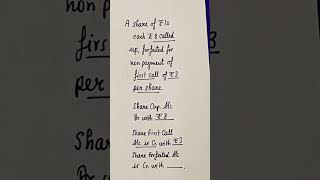 A share of ₹10
each ₹8 called
up, forfeited for
non payment of
first call of ₹3
per share.
Share Cap. A/c
Dr with ₹8
Share First Call
A/c is Cr with ₹3
Share Forfeited A/c
is Cr with ____.